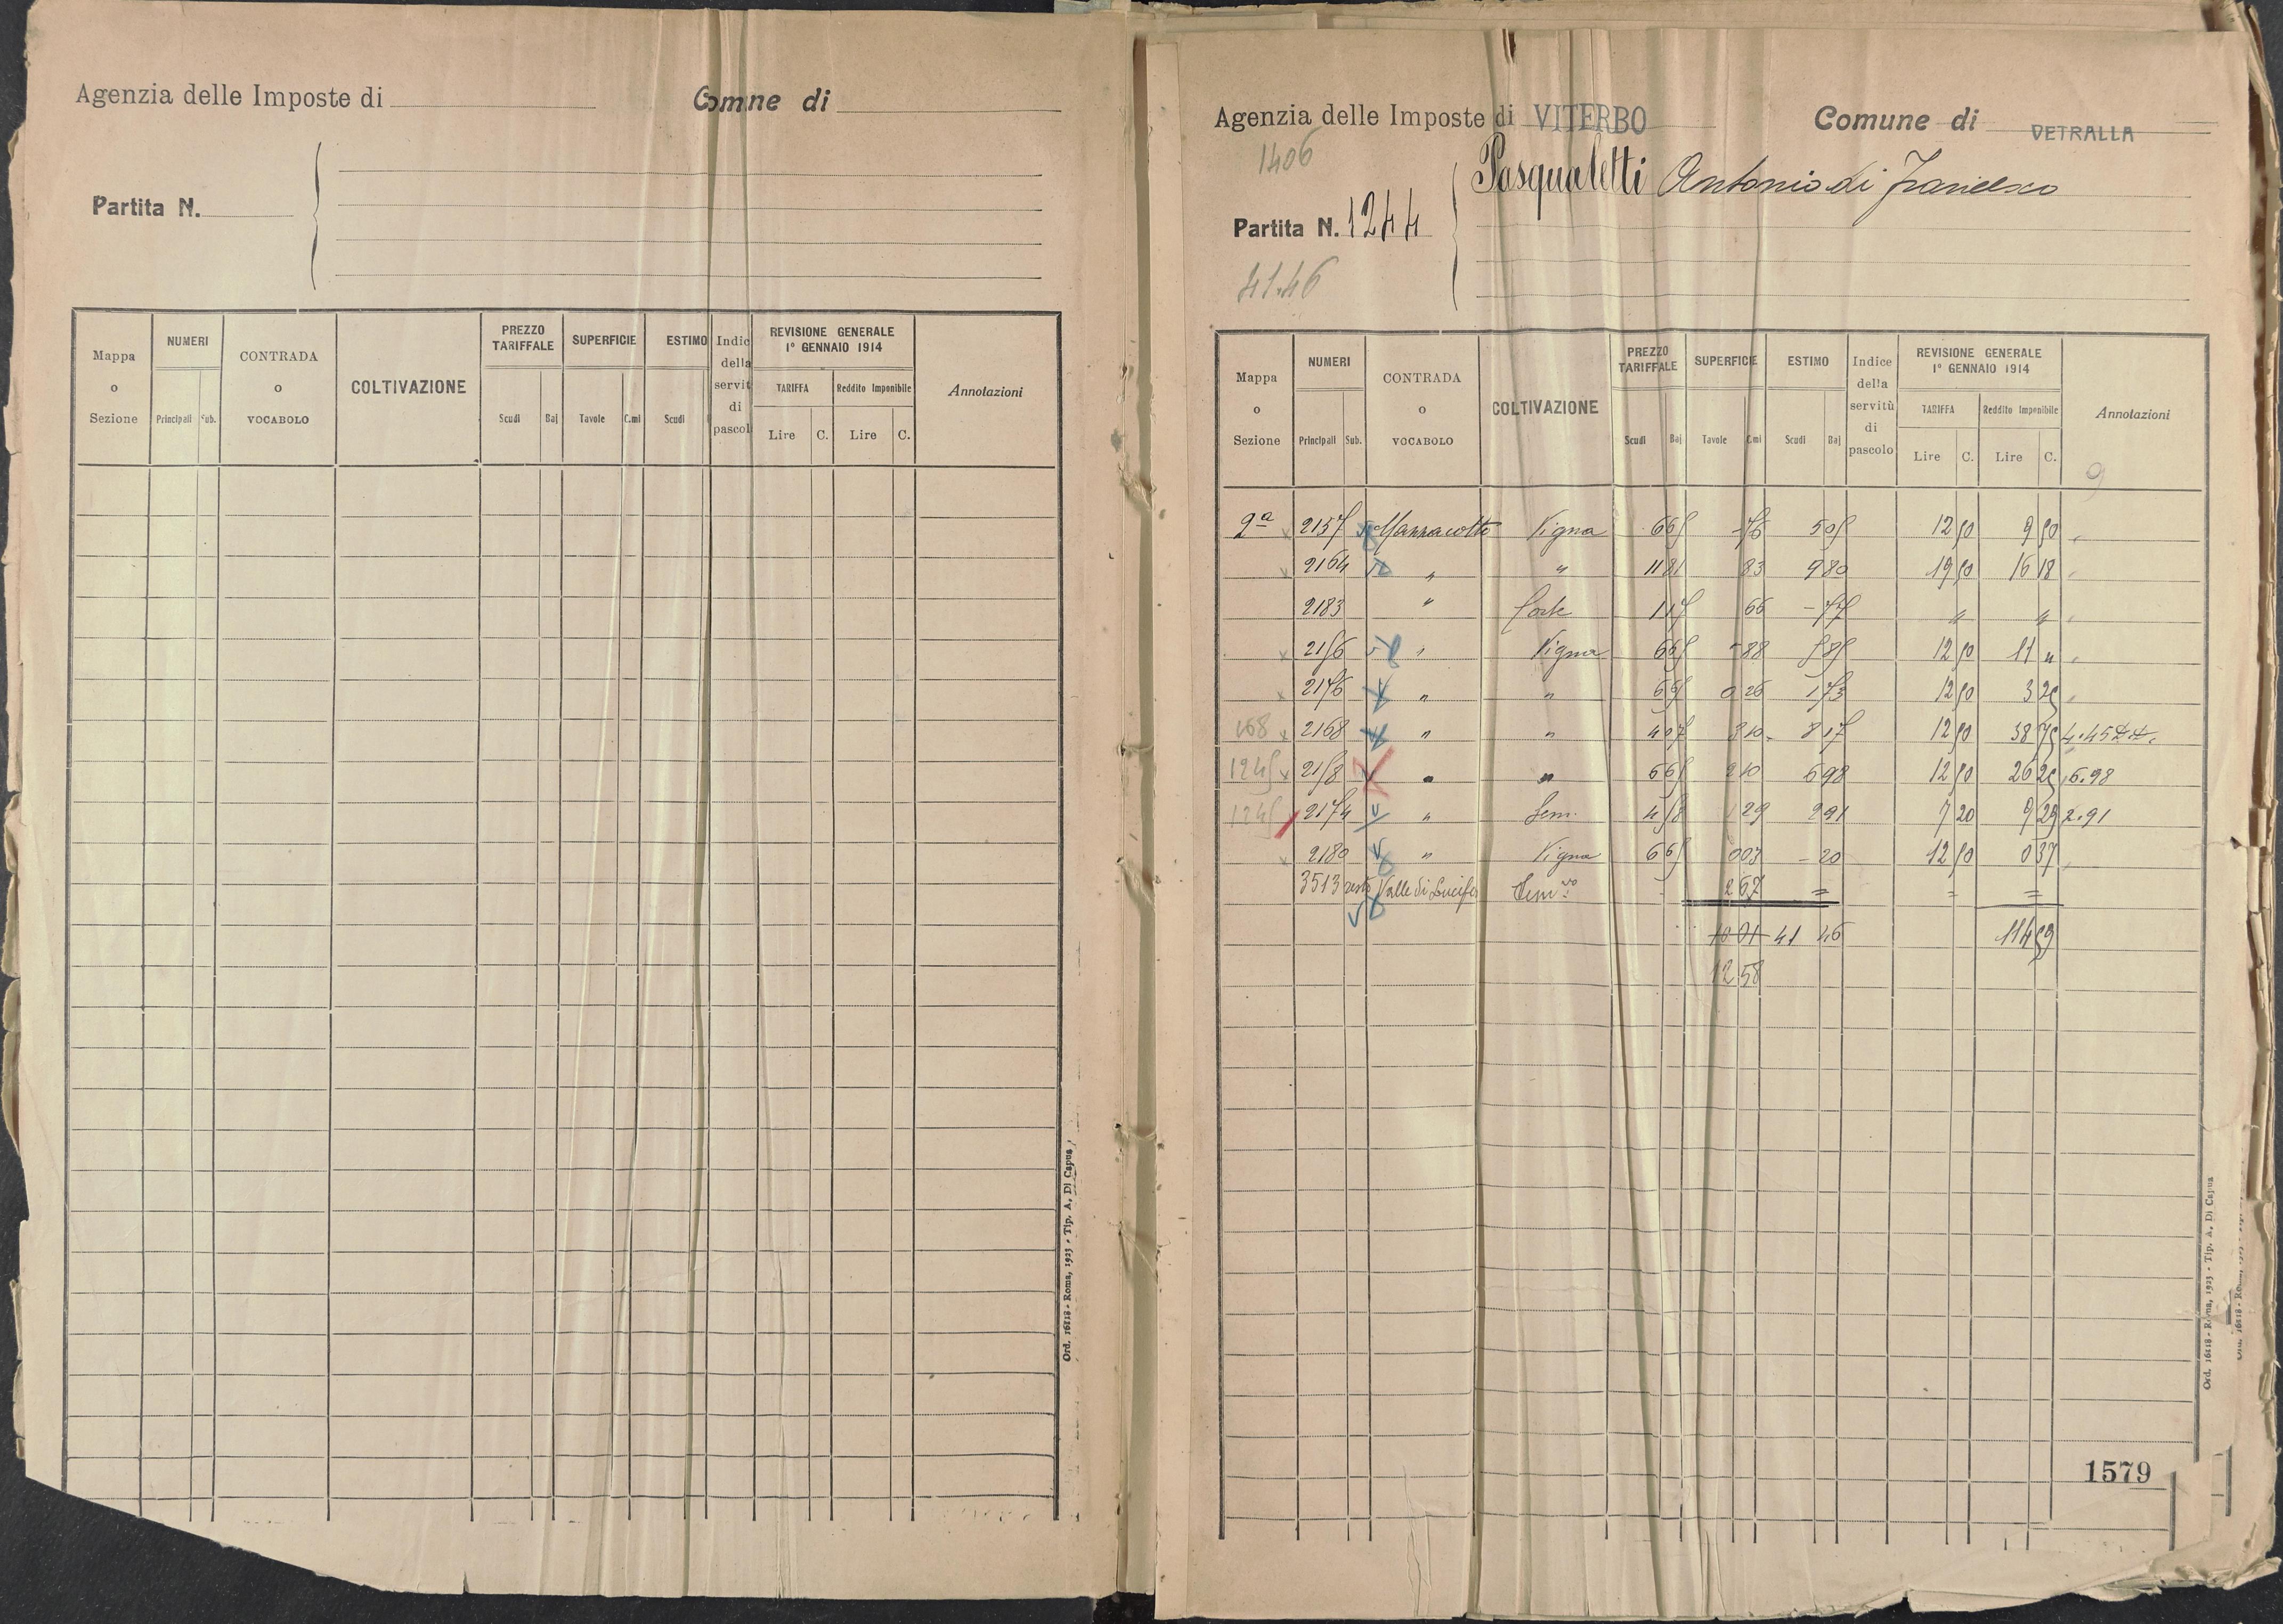 Agenzia delle Imposte di
Comne di
Partita N.
Mappa o Sezione
NUMERI
Principali Sub.
CONTRADA o VOCABOLO
COLTIVAZIONE
PREZZO TARIFFALE
Scudi Baj
SUPERFICIE
Tavole C.mi
ESTIMO
Scudi
Indic della servit di pascol
REVISIONE GENERALE
1° GENNAIO 1914
TARIFFA Reddito Imponibile
Lire C. Lire C.
Annotazioni
Ord. 16118 - Roma, 1923 - Tip. A. Di Capua
Agenzia delle Imposte di VITERBO
Comune di VETRALLA
1406
Pasqualetti Antonio di Francesco
Partita N. 1244
41.46
Mappa o Sezione
NUMERI
Principali Sub.
CONTRADA o VOCABOLO
COLTIVAZIONE
PREZZO TARIFFALE
Scudi Baj
SUPERFICIE
Tavole C.mi
ESTIMO
Scudi Baj
Indice della servitù di pascolo
REVISIONE GENERALE
1° GENNAIO 1914
TARIFFA Reddito Imponibile
Lire C. Lire C.
Annotazioni
9
2157 Vigna 665 -76 505 12 50 9 50
2164 " " 11 81 83 9 80 19 50 16 18
2183 " 1 17 66 - 77 " "
2156 " Vigna 665 - 88 5 85 12 50 11 "
2176 " " 665 0 26 1 73 12 50 3 25
168 2168 " " 407 310 12 50 38 75 4.45
1245 2158 " " 665 210 698 12 50 26 25 6.98
1245 2174 " Sem. 458 129 291 7 20 9 29 2.91
2180 " Vigna 665 003 - 20 12 50 0 37
3513 resto Valle di Lucifero Sem.vo 267 = = =
10 01 41 46 114 59
12 58
1579
Ord. 16118 - Roma, 1923 - Tip. A. Di Capua